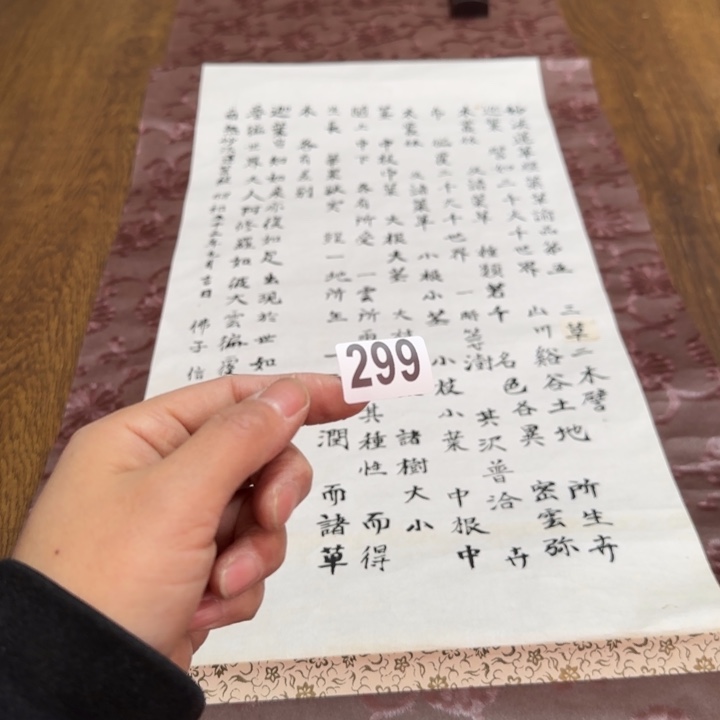 妙法蓮華経薬草喩品第五 三草二木譬 所生卉
迦葉 譬如三千大千世界 山川谿谷土地 密雲弥
木叢林 及諸薬草 種類若干 名色各異 卉
布 徧覆三千大千世界 一時等澍 其沢普洽
木叢林 及諸薬草 小根小茎 小枝小葉 中根中
茎 中枝中葉 大根大茎 大枝 諸樹大小
随上中下 各有所受 一雲所雨 其種性 而得
生長 華菓敷実 雖一地所生 一 潤 而諸草
木 各有差別
迦葉当知如来亦復如是出現於世如
音 世界天人阿修羅如彼大雲徧覆
佛子
299